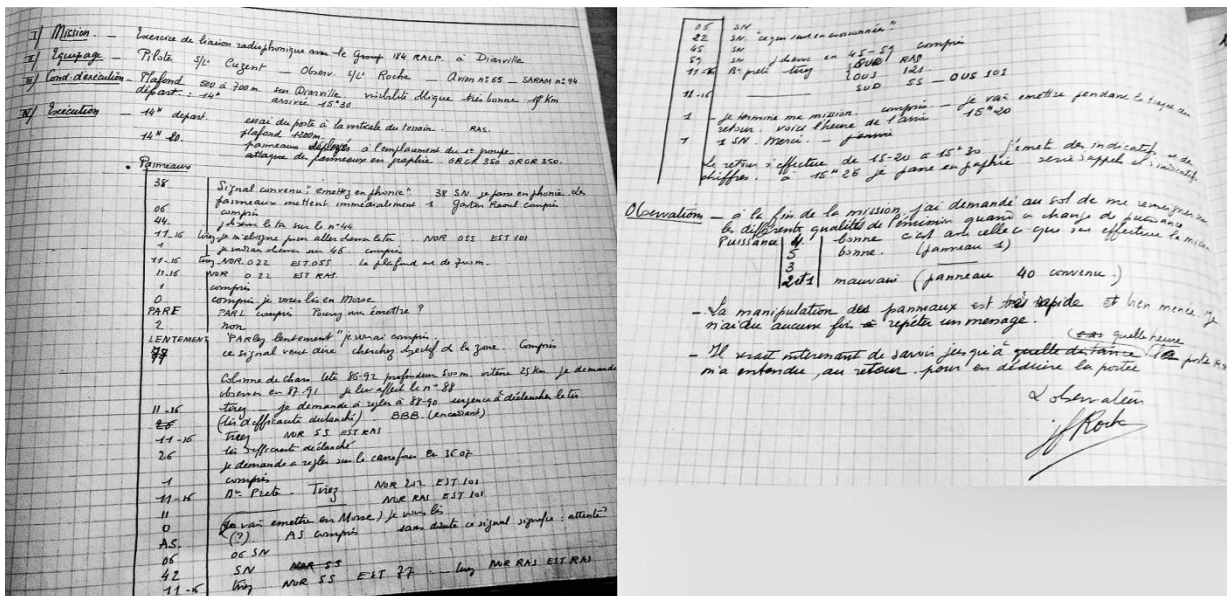 I) Mission. — Exercice de liaison radiophonique avec le Group 184 RALP. à Dianville
II) Equipage — Pilote S/Lt Cuzent — Observ. S/Lt Roche — Avion n° 65 — SARAM n° 94
III) Cond. d'exécution — Plafond 500 à 700m sur Dianville visibilité oblique très bonne 18 Km
départ : 14H arrivée 15H30
IV) Exécution — 14H départ. essai du poste à la verticale du terrain. RAS.
plafond 1200m.
14H 20. panneaux déployés à l'emplacement du 1er groupe.
attaque de panneaux en graphie. ORGR 350 ORGR 350.
• Panneaux
38 Signal convenu "émettez en phonie". 38 SN. je passe en phonie. Les
panneaux mettent immédiatement 1 Gaston Raoul compris
06 compris
44. j'observe le tir sur le n° 44
11-16 tirez je m'éloigne pour aller dans le tir. NOR 055 EST 101
1 compris
11-16 tirez NOR. 022 EST. 055. le plafond est de 700m.
11.16 NOR 0.22 EST RAS.
1 compris
0 compris je vous lis en Morse
PARE PARL compris Pouvez-vous émettre ?
2 non
LENTEMENT "PARlez lentement" je vous compris.
77 ce signal veut dire : cherchez objectif d la zone. Compris
Colonne de chars. tête 86-92 profondeur 500m vitesse 25 Km je demande
observer en 87.91 je lui affecte le n° 88
11-16 tirez je demande à régler à 88-90 urgence à déclencher le tir
26 (tir d'efficacité déclanché) BBB. (encadrant)
11-16 Tirez NOR SS EST RAS
26 tir d'efficacité déclanché
je demande a régler sur le carrefour en 36.07
1 compris
11-16 Bie Prête - Tirez NOR 202 EST 101
11 NOR RAS EST 101
0 (je vais émettre en Morse) je vous lis
AS. (?) AS compris sans doute ce signal signifie : attente ?
06 06 SN
42 SN NOR SS
11-16 tirez NOR SS EST 77 — tirez NOR RAS EST RAS
05 SN
22 SN
45 SN
59 SN j'observe en 45-59 compris
11-16 Bie prête tirez SUD RAS
OUS 121.
11-16 SUD SS — OUS 101
1 — je termine ma mission. compris — je vais émettre pendant le trajet du
retour. voici l'heure de l'arrivée 15H20
1 1 SN. Merci.
Le retour s'effectue de 15-20 à 15H30 j'émets des indicatifs et de
chiffres. à 15H26 je passe en graphie série d'appel et d'indicatifs
Observations — à la fin de la mission j'ai demandé au sol de me renseigner sur
les différentes qualités de l'émission quand on change de puissance
Puissance 4. bonne c'est avec celle-ci que j'ai effectué la mission
5 bonne. (panneau 1)
3
2 et 1 mauvais (panneau 40 convenu.)
— La manipulation des panneaux est très rapide et bien menée. Je
n'ai du aucune fois à répéter un message.
— Il serait intéressant de savoir jusqu'à quelle distance (quelle heure) le poste
m'a entendu, au retour. pour en déduire la portée
L'observateur
Roche